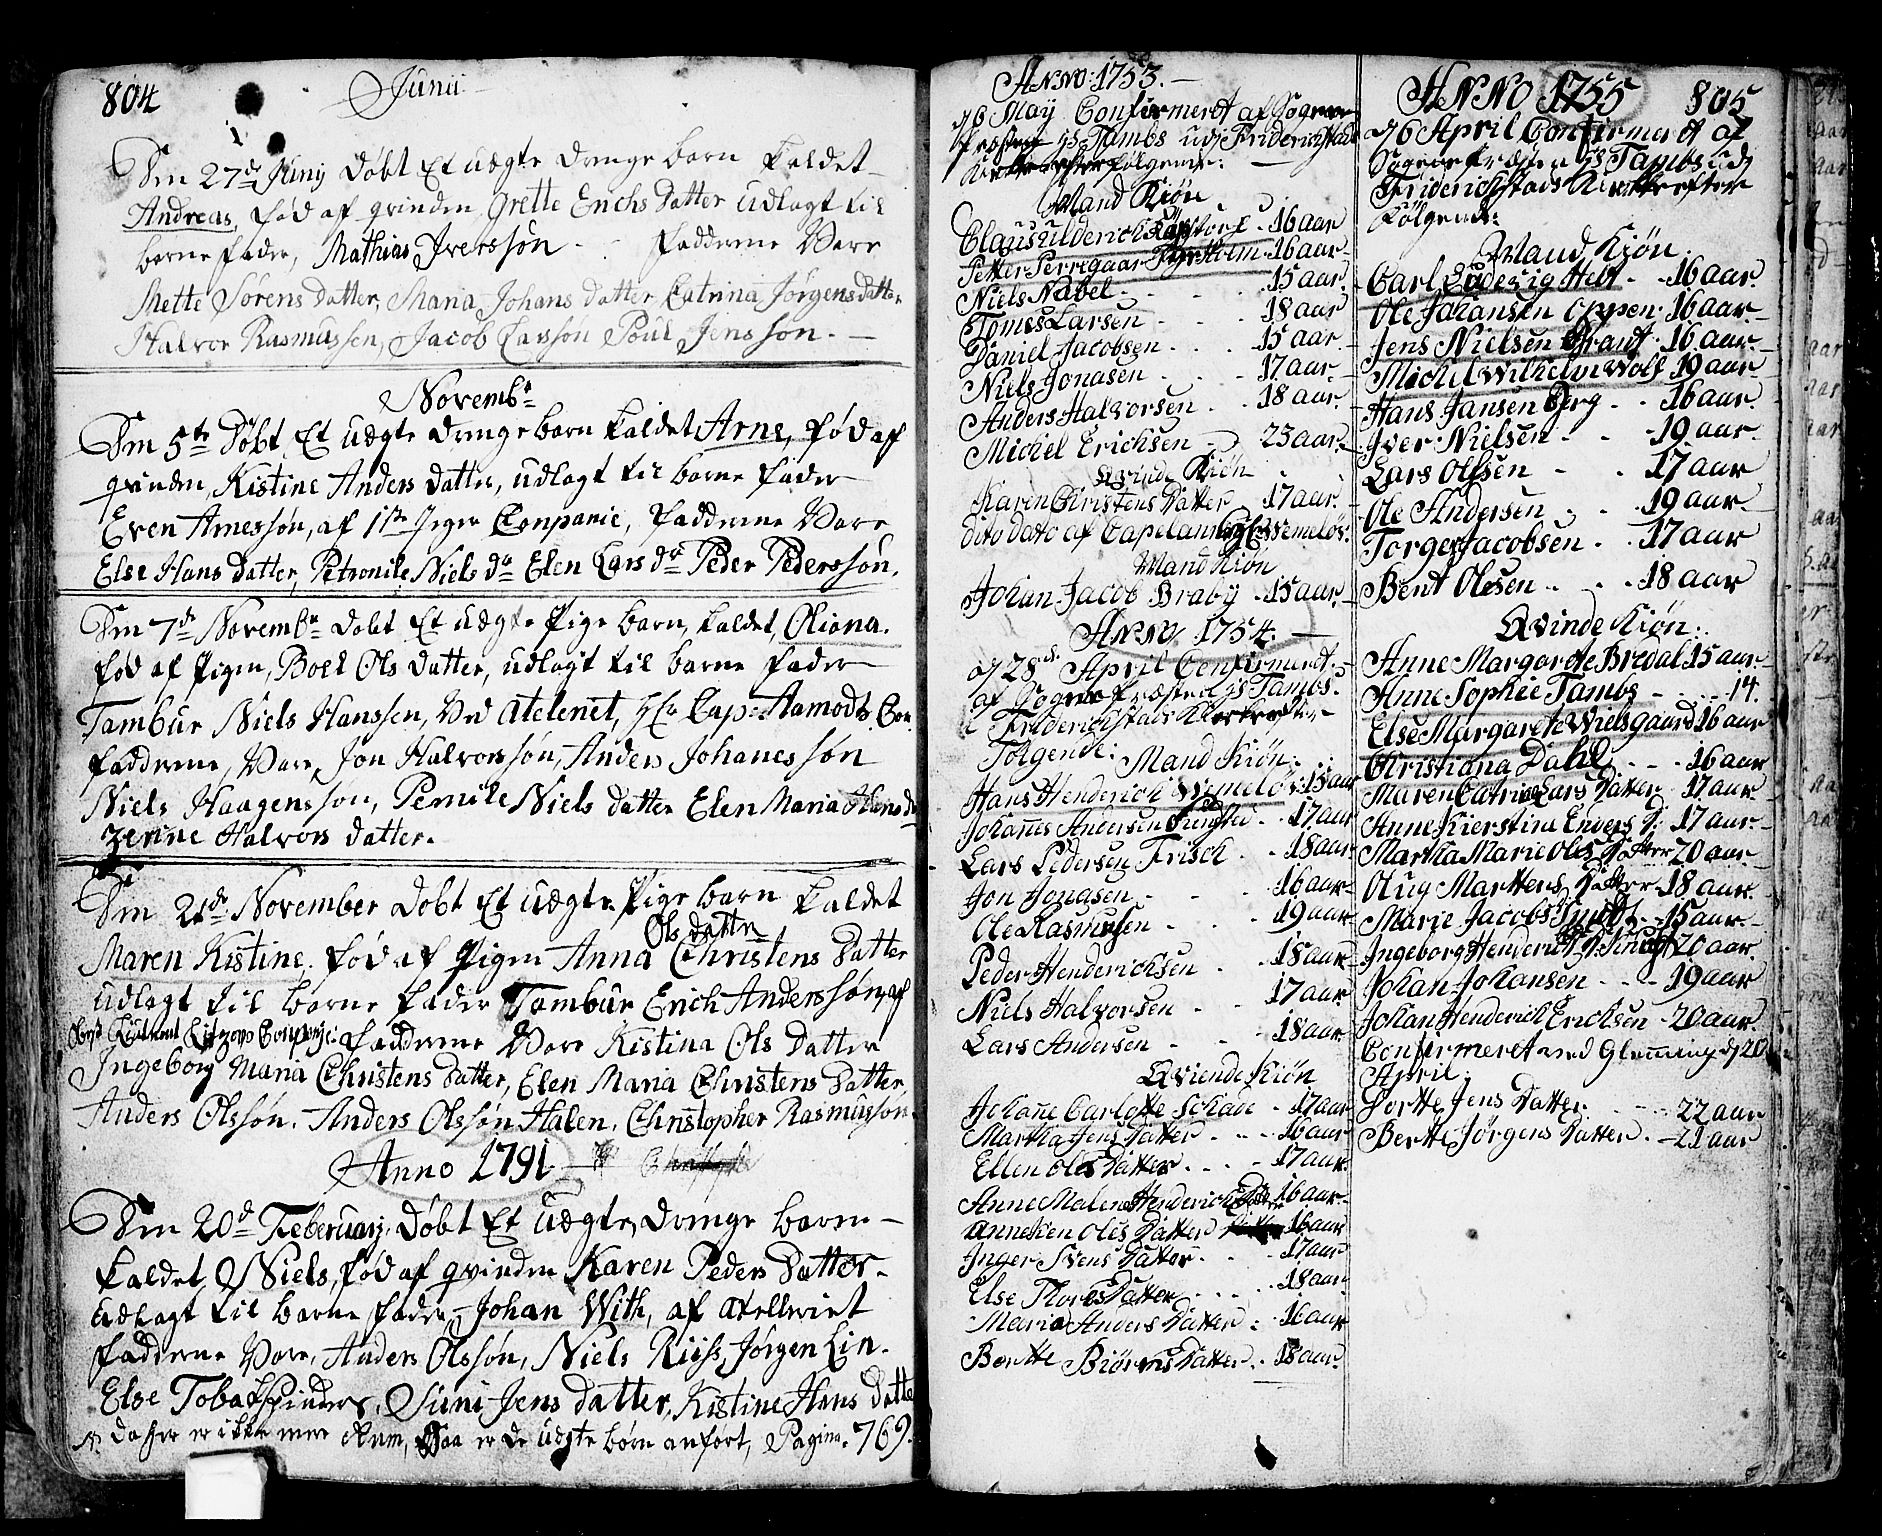 804
Junii
Den 27de Junij Døbt Et uægte drenge barn kaldet
Andreas, fød af qvinden Grette Erichs datter udlagt til
barne fader, Mathias Iverssøn fadderne Vare
Mette Sørens datter, Maria Johans datter Catrina Jørgens datter
Halvor Rasmussen, Jacob Larssøn Poul Jenssøn.
Novembr
Den 5te Døbt Et uægte drenge barn kaldet Arne, fød af
qvinden, Kistine Anders datter, udlagt til barne fader
Even Arnessøn, af 1ste Jeger Conpanie, fadderne Vare
Else Hans datter, Petronile Niels dr Elen Lars dr Peder Pederssøn.
Den 7de Novembr døbt Et uægte Pige barn, kaldet, Oliana.
fød af Pigen, Boel Ols datter, udlagt til barne fader
Tambur Niels Hanssen, Ved Atelenet, Hr Cap: Aamodts Con
fadderne, Vare, Jon Halvorssøn, Anders Johanessøn
Niels Haagenssøn, Pernile Niels datter Elen Maria Hans dr
Zenne Halvors datter.
Den 21de November døbt Et uægte Pige barn kaldet
Ols datter
Maren Kistine. fød af Pigen Anna Christens datter
udlagt til barne fader Tambur Erich Anderssøn, af
Obrist Leutnant Litzows Companje: fadderne Vare Kistina Ols datter
Ingeborg Maria Christens datter, Elen Maria Christens datter,
Anders Olssøn. Anders Olssøn Halen. Christopher Rasmussøn.
Anno 1791
Den 20de Februarij, Døbt Et uægte, drenge barn
kaldet Niels, fød af qvinden Karen Peders datter
udlagt til barne fader, Johan With, af
fadderne Vare, Anders Olssøn, Niels Riiss, Jørgen Lin.
Else Tobakspinders, Siuni Jens datter, Kistine Hans datter
da her er ikke mere Rum, Saa er de uægte børn anført, Pagina. 769.
Anno: 1753.
d 6 May Confirmeret af Sogne
Præsten Hs Tambs udj Friderichstads
Kirke efterfølgende:
Mand Kiøn
Claus Ulderich 16 aar
Petter 16 aar
Niels Nabel 15 aar
Tomes Larsen 18 aar
Daniel Jacobsen 15 aar.
Niels Jonasen 17 aar
Anders Halvorsen 18 aar.
Michel Erichsen 23 aar.
Qvinde Kiøn
Karen Christens Datter 17 aar.
dito dato af Capelan
Mand Kiøn
Johan Jacob Braby 15 aar.
Anno 1754.
d 28de April Confirmeret
af Sogne Præsten Hs Tambs.
Friderichstads Kirke efter
Følgende: Mand Kiøn
Hans Henderich 15 aar
Johannes Andersen 17 aar
Lars Pedersen Frisch 18 aar
Jon Jonasen 16 aar
Ole Rasmusen 19 aar
Peder Henderichsen 18 aar
Niels Halvorsen 17 aar
Lars Andersen 18 aar
Qviende Kiøn
Johanne Carlotte Schade 17 aar
Martha Jens Datter 16 aar
Ellen Oles Datter 17 aar
Anne Malene Henderich 16 aar
Anneken Oles Datter 16 aar
Inger Svens Datter 17 aar
Else Thores Datter 18 aar
Maria Anders Datter 16 aar
Berthe Biørns Datter 18 aar.
ANNO 1755
805
d 6 April Confirmeret af
Sogne Præsten Hs Tambs udj
Friderichstads Kirke efter
Følgende:
Mand Kiøn
Carl Ludevig Helt 16 aar.
Ole Johansen Oppen 16 aar.
Jens Nielsen Brant 16 aar.
Michel Wilhelm Wolf 19 aar
Hans Jansen Berg 16 aar.
Iver Nielsen 19 aar.
Lars Olssen 17 aar
Ole Andersen 19 aar
Torger Jacobsen 17 aar
Bent Olesen 18 aar
Qvinde Kiøn:
Anne Margarete Bredal 15 aar
Anne Sophie Tambs 14.
Else Margarete Nielsgaard 16 aar
Christiana Dahl 16 aar
Maren Catrine Lars Datter 17 aar
Anne Kierstine Enders D: 17 aar.
Martha Marie Oles Datter 20 aar
Olug Martens Datter 18 aar.
Marie Jacobs Smidt 15 aar.
Ingeborg Henderichs D: 20 aar.
Johan Johansen 19 aar
Johan Henderich Ericksen 20 aar.
Confirmeret ved Glemming d 20
April:
Dorthe Jens Datter 22 aar
Berthe Jørgens Datter 21 aar